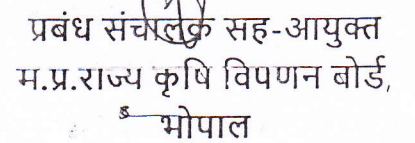 प्रबंध संचालक सह-आयुक्त
म.प्र.राज्य कृषि विपणन बोर्ड,
भोपाल